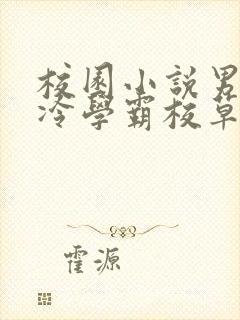 校園小說男
冷學霸校草
霍源